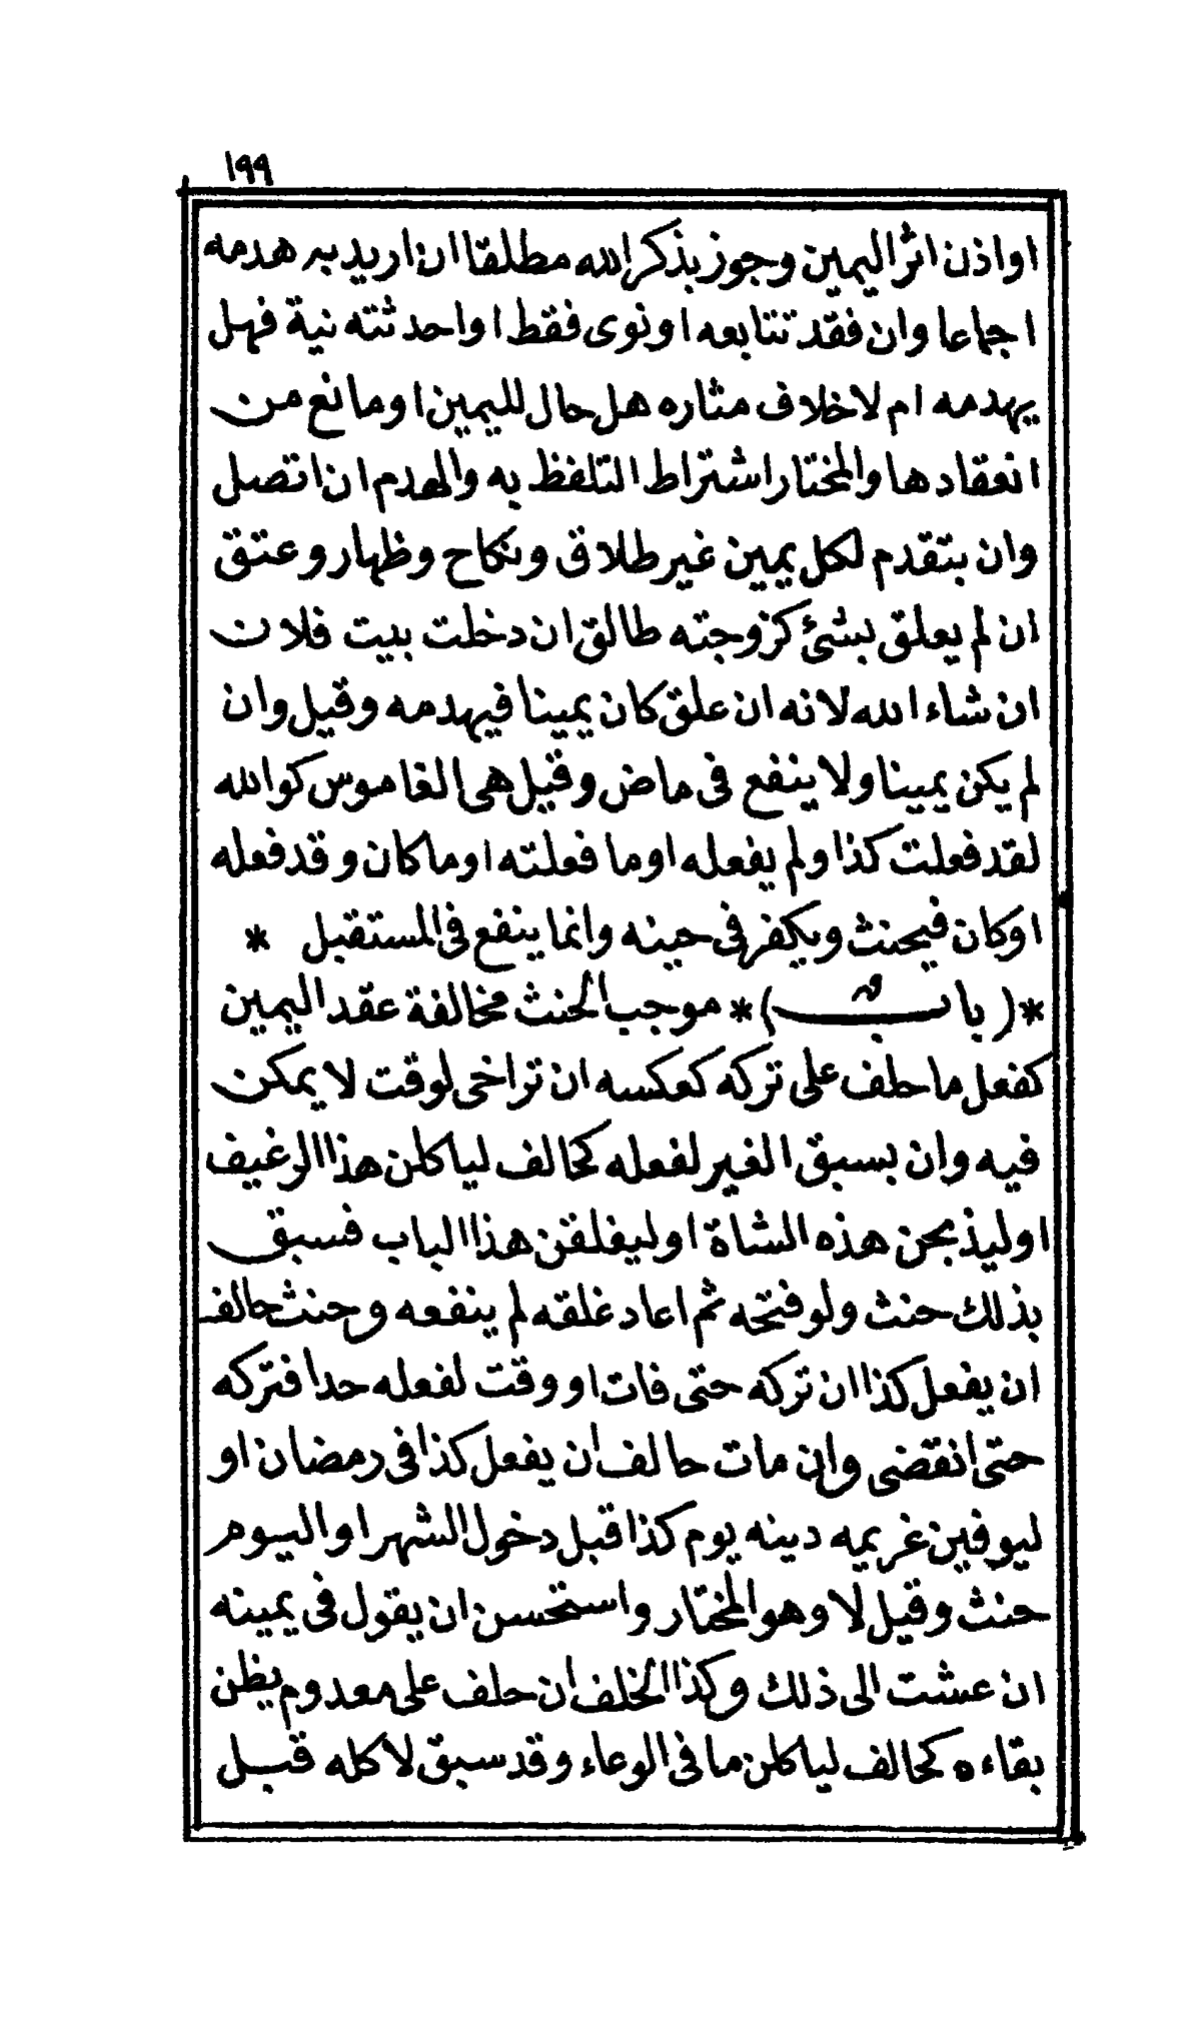 ١٩٩
او اذن اثر اليمين وجوز بذكر الله مطلقا ان اريد به هدمه
اجماعا وان فقد تتابعه او نوى فقط او احدثته نية فهل
يهدمه ام لا خلاف مثاره هل حال لليمين او مانع من
انعقادها والمختار اشتراط التلفظ به والهدم ان اتصل
وان بتقدم لكل يمين غير طلاق ونكاح وظهار وعتق
ان لم يعلق بشئ كزوجته طالق ان دخلت بيت فلان
ان شاء الله لانه ان علق كان يمينا فيهدمه وقيل وان
لم يكن يمينا ولا ينفع فى ماض وقيل هى الغاموس كوالله
لقد فعلت كذا ولم يفعله او ما فعلته او ما كان وقد فعله
او كان فيحنث ويكفر فى حينه وانما ينفع فى المستقبل *
*(باب)* موجب الحنث مخالفة عقد اليمين
كفعل ما حلف على تركه كعكسه ان تراخى لوقت لا يمكن
فيه وان بسبق الغير لفعله كحالف لياكلن هذا الرغيف
او ليذبحن هذه الشاة او ليغلقن هذا الباب فسبق
بذلك حنث ولو فتحه ثم اعاد غلقه لم ينفعه وحنث حالف
ان يفعل كذا ان تركه حتى فات او وقت لفعله حدا فتركه
حتى انقضى وان مات حالف ان يفعل كذا فى رمضان او
ليوفين غريمه دينه يوم كذا قبل دخول الشهر او اليوم
حنث وقيل لا وهو المختار واستحسن ان يقول فى يمينه
ان عشت الى ذلك وكذا الخلف ان حلف على معدوم يظن
بقاءه كحالف لياكلن ما فى الوعاء وقد سبق لاكله قبل